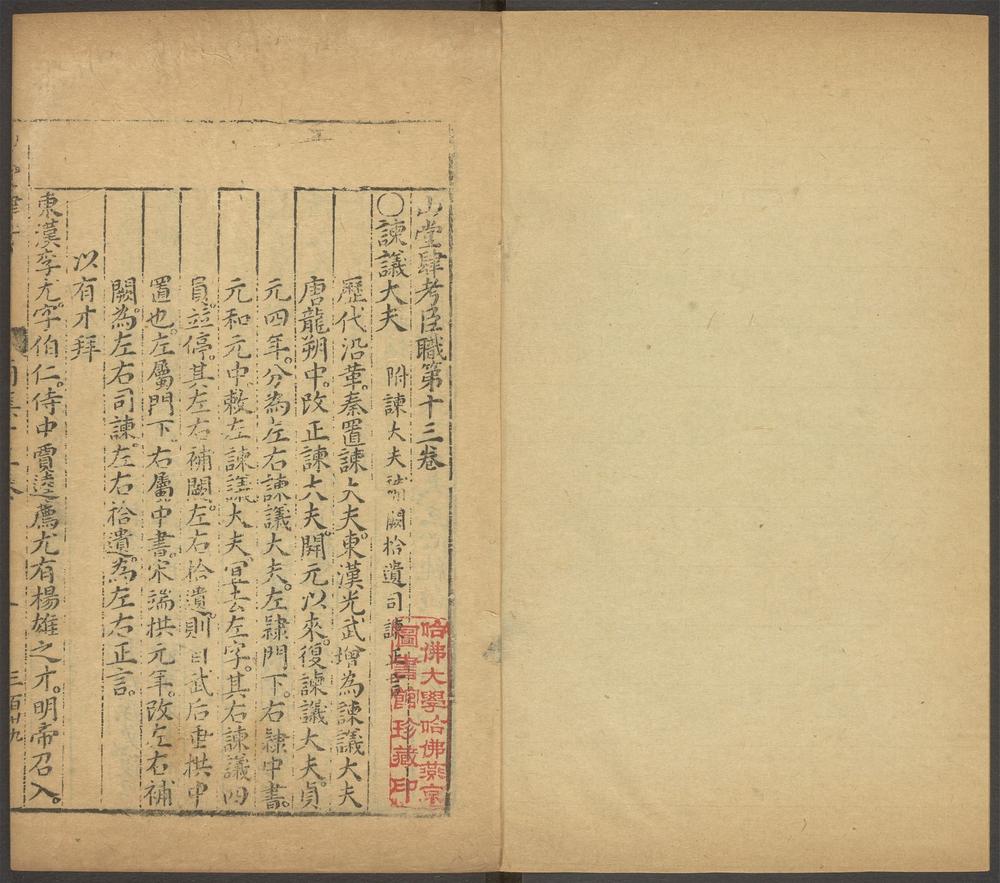 山堂肆考臣職第十三卷
○諫議大夫 附諫大夫補闕拾遺司諫正言
歷代沿革。秦置諫大夫。東漢光武增為諫議大夫
唐龍朔中。改正諫大夫。開元以來。復諫議大夫。貞
元四年。分為左右諫議大夫。左隸門下。右隸中書。
元和元中。敕左諫議大夫。宜去左字。其右諫議四
員。並停。其左右補闕。左右拾遺。則自武后垂拱中
置也。左屬門下。右屬中書。宋端拱元年。改左右補
闕。為左右司諫。左右拾遺。為左右正言。
以有才拜
東漢李尤。字伯仁。侍中賈逵薦尤有楊雄之才。明帝召入。
三百廿九
哈佛大學哈佛燕京
圖書館珍藏印